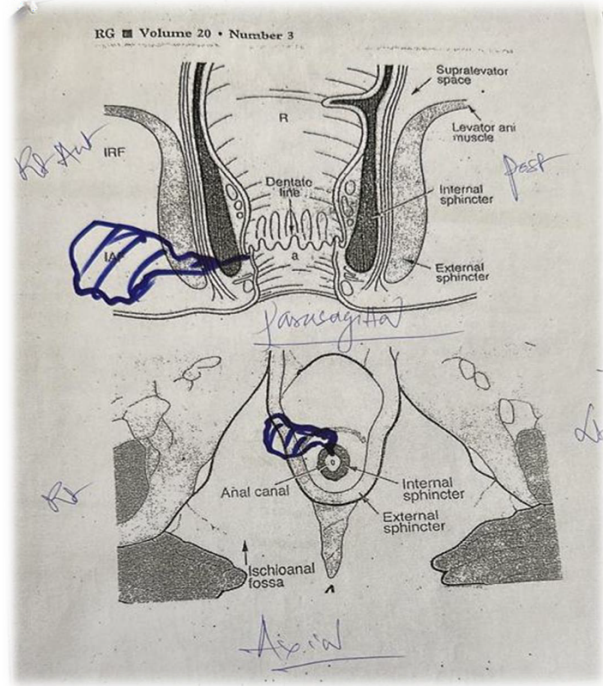 RG ■ Volume 20 • Number 3
Supralevator
space
R
Levator ani
muscle
IRF
Rt Ant
Post
Dentate
line
Internal
sphincter
a
External
sphincter
Parasagittal
Rt
Anal canal
Internal
sphincter
External
sphincter
Ischioanal
fossa
Axial